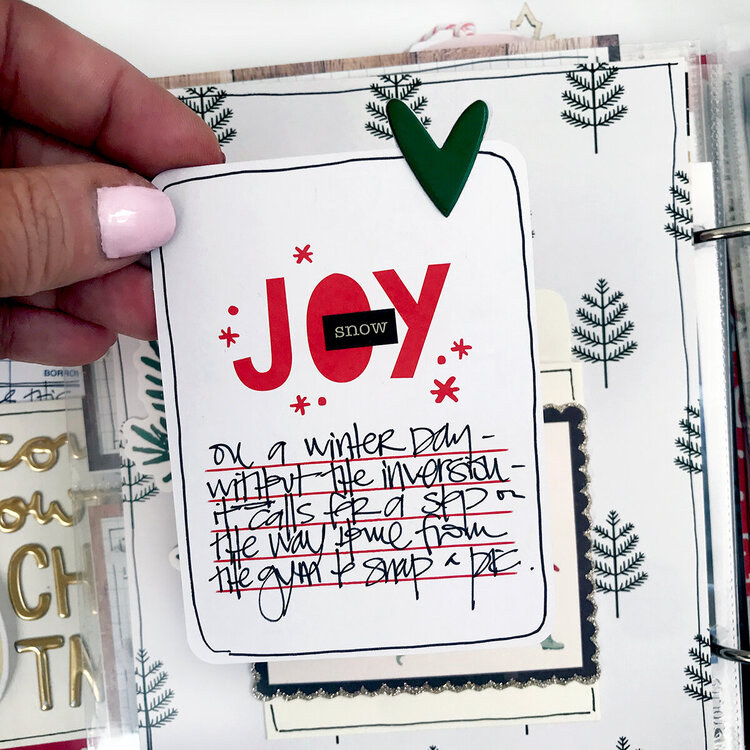 JOY
snow
on a winter day -
without the inversion -
it calls for a stop on
the way home from
the gym to snap a pic.
BORRO
CO
OU
CH
TA